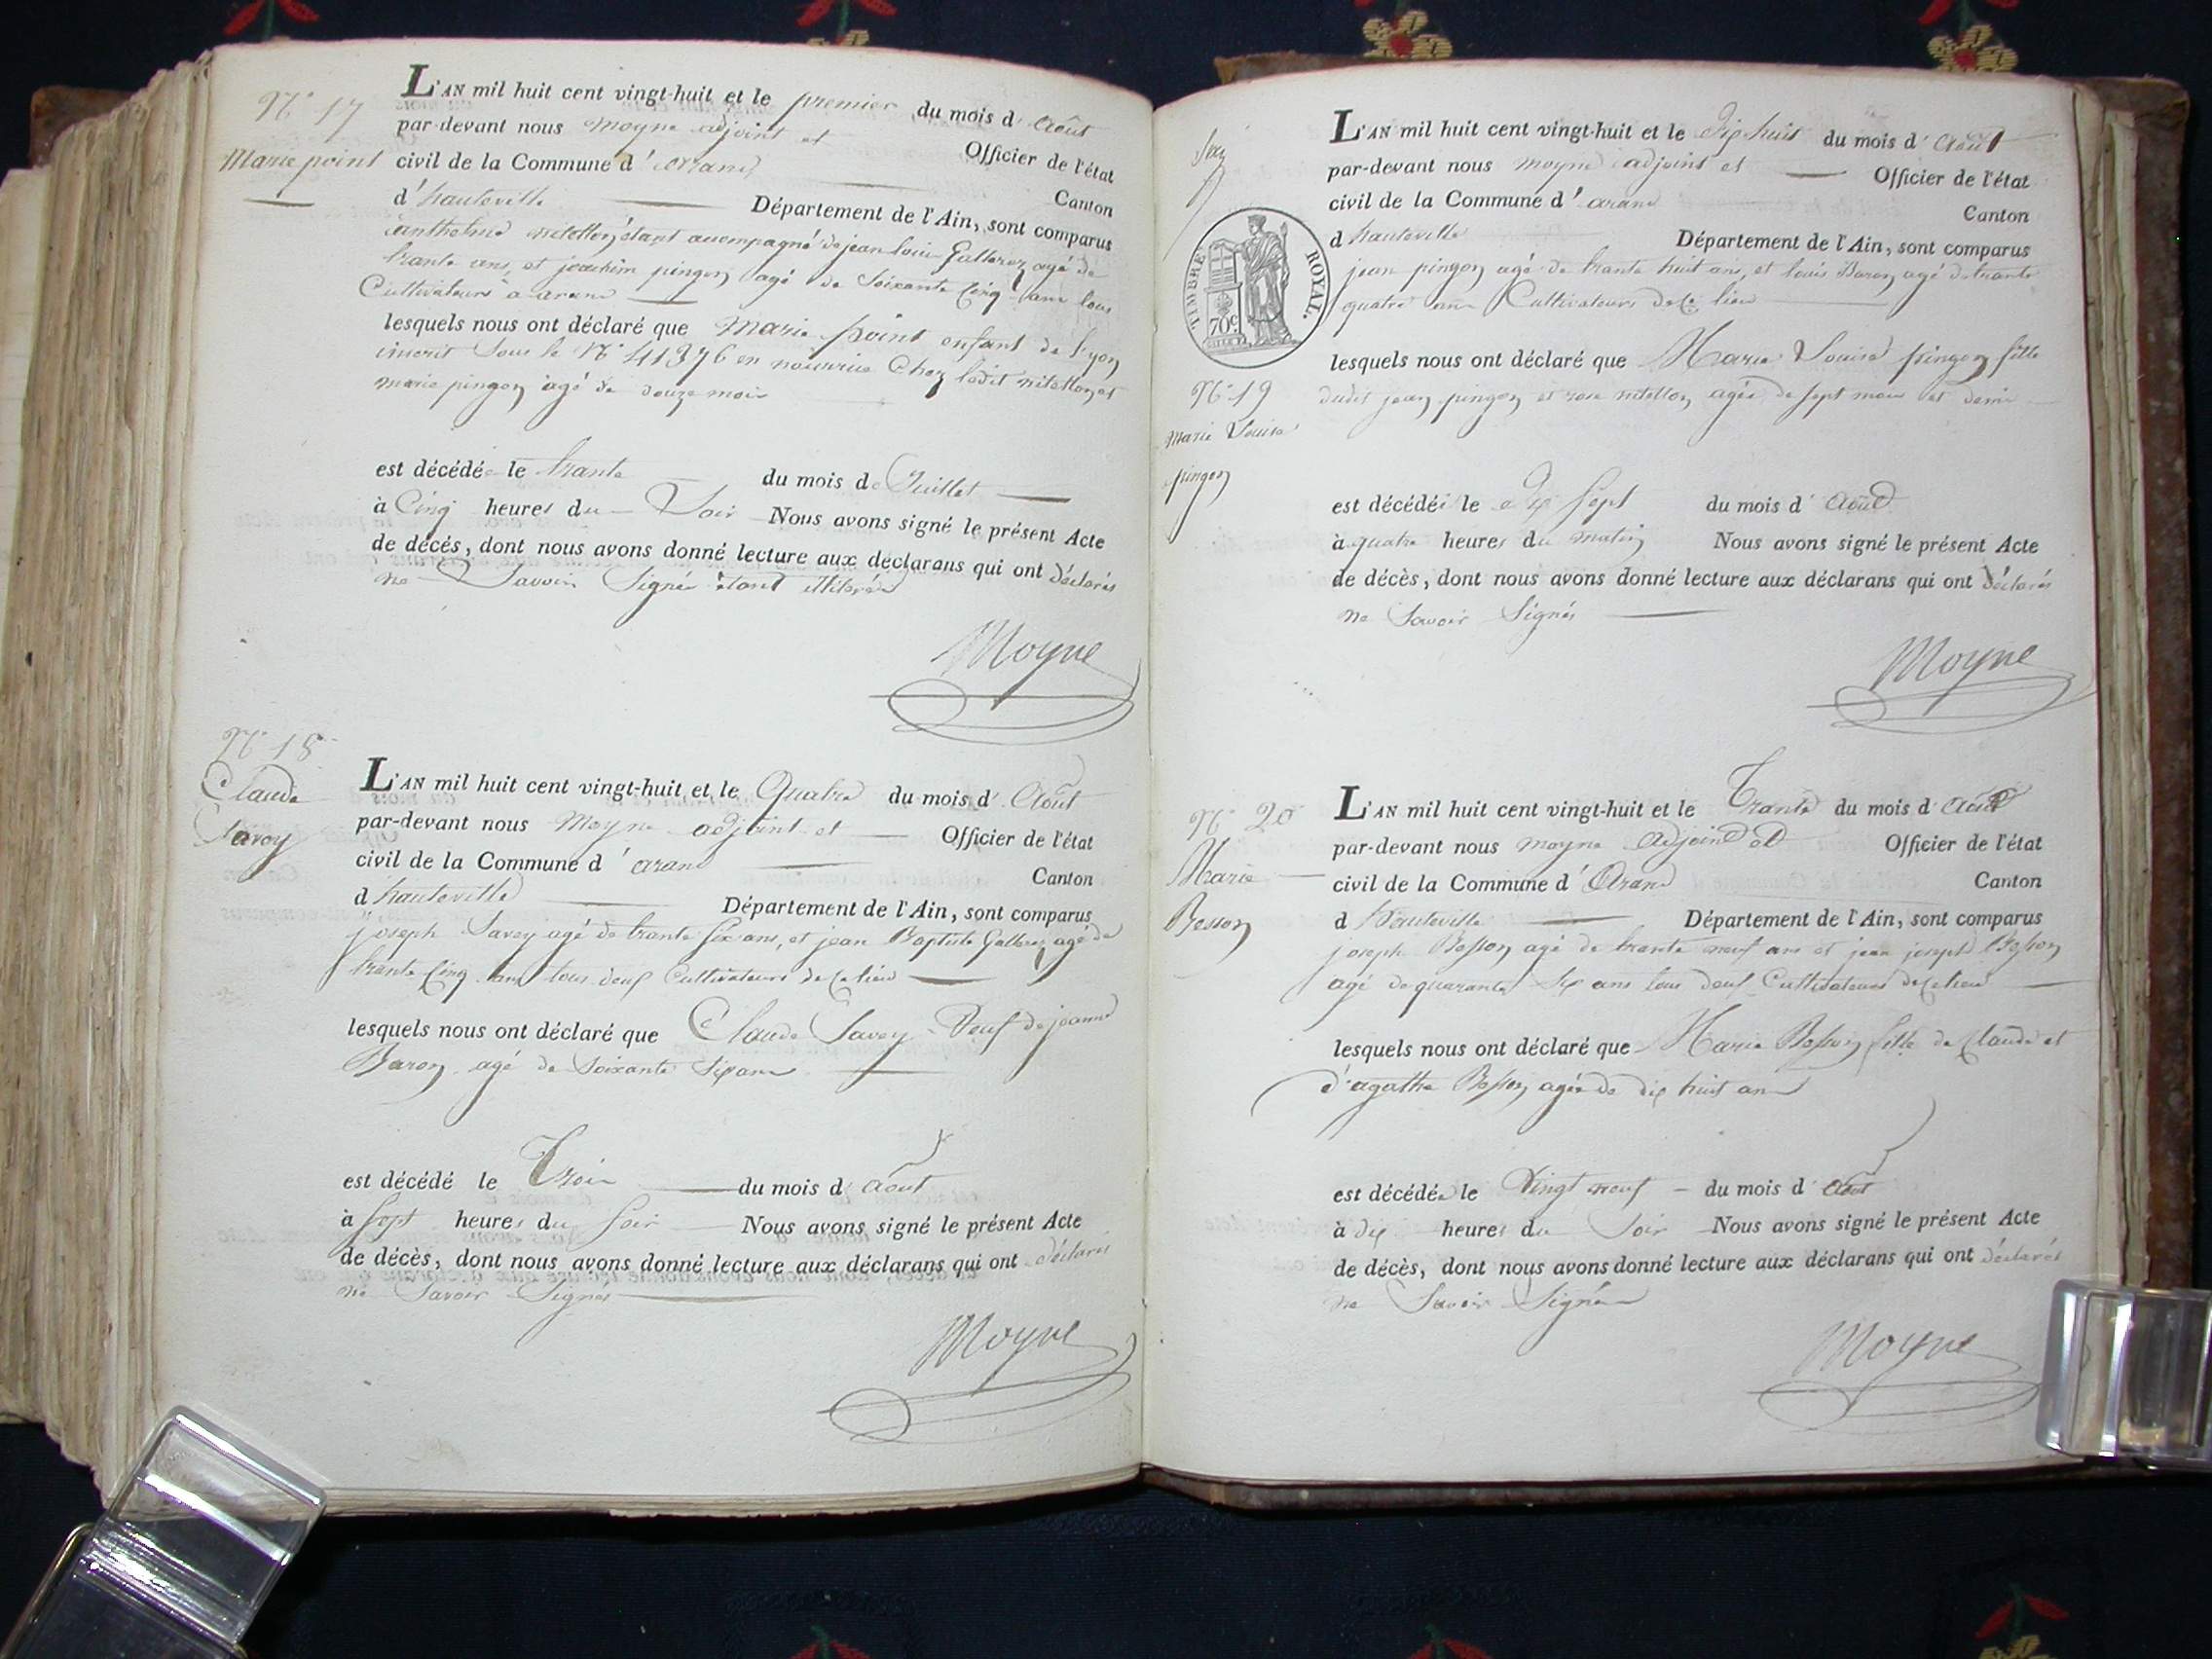 N° 17
Marie point
L'AN mil huit cent vingt-huit et le premier du mois d'Août
par-devant nous moyne adjoint et Officier de l'état
civil de la Commune d'arand Canton
d'hauteville Département de l'Ain, sont comparus
anthelme étant accompagné de jean louis Gallerez agé de
trante ans, et joachim pingon agé de Soixante Cinq ans tous
Cultivateurs a arand
lesquels nous ont déclaré que Marie point enfant de lyon
inscrit Sous le N° 41376 en nourrice Chez ledit et
marie pingon agé de douze mois
est décédée le trante du mois de Juillet
à Cinq heures du Soir Nous avons signé le présent Acte
de décès, dont nous avons donné lecture aux déclarans qui ont déclarés
ne Savoir Signé étant illiterés
Moyne
N° 18
Claude
Savey
L'AN mil huit cent vingt-huit et le Quatre du mois d'Août
par-devant nous Moyne adjoint et Officier de l'état
civil de la Commune d'arand Canton
d hauteville Département de l'Ain, sont comparus
joseph Savey agé de trante six ans, et jean Baptiste Gallerez agé de
trante Cinq ans tous deux Cultivateurs de Ce lieu
lesquels nous ont déclaré que Claude Savey Veuf de jeanne
Baron agé de Soixante Six ans
est décédé le Trois du mois d'août
à Sept heures du Soir Nous avons signé le présent Acte
de décès, dont nous avons donné lecture aux déclarans qui ont déclarés
ne Savoir Signés
Moyne
TIMBRE ROYAL.
70 c
N° 19
Marie Louise
pingon
L'AN mil huit cent vingt-huit et le Dix huit du mois d'Août
par-devant nous moyne adjoint et Officier de l'état
civil de la Commune d'arand Canton
d hauteville Département de l'Ain, sont comparus
jean pingon agé de trante huit ans, et louis Baron agé de trante
quatre ans Cultivateurs de Ce lieu
lesquels nous ont déclaré que Marie Louise pingon fille
dudit jean pingon et rose agée de sept mois et demi
est décédée le Dix Sept du mois d'Août
à quatre heures du matin Nous avons signé le présent Acte
de décès, dont nous avons donné lecture aux déclarans qui ont déclarés
ne Savoir Signés
Moyne
N° 20
Marie
Besson
L'AN mil huit cent vingt-huit et le Trante du mois d'Août
par-devant nous moyne adjoint et Officier de l'état
civil de la Commune d'Arand Canton
d hauteville Département de l'Ain, sont comparus
joseph Besson agé de trante neuf ans et jean joseph Besson
agé de quarante Six ans tous deux Cultivateurs de Ce lieu
lesquels nous ont déclaré que Marie Besson fille de Claude et
d'agathe Besson agée de dix huit ans
est décédée le Vingt neuf du mois d'Août
à dix heures du Soir Nous avons signé le présent Acte
de décès, dont nous avons donné lecture aux déclarans qui ont déclarés
ne Savoir Signés
Moyne